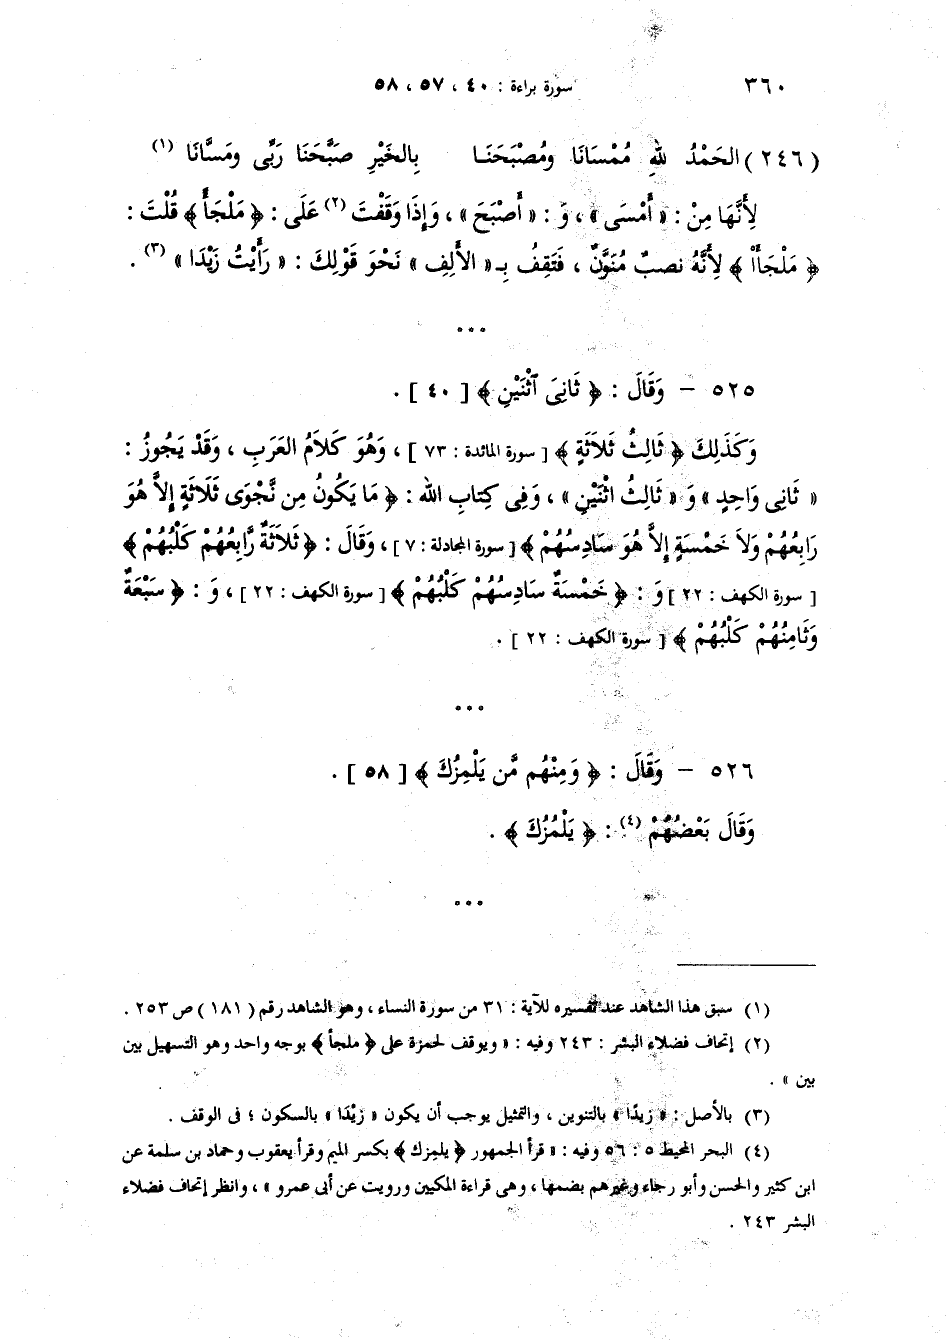 ٣٦٠ سورة براءة : ٤٠ ، ٥٧ ، ٥٨
(٢٤٦) الحَمْدُ للهِ مُمْسَانَا ومُصْبَحَنَا بِالخَيْرِ صَبَّحَنَا رَبِّى ومَسَّانَا (١)
لِأَنَّهَا مِنْ : « أَمْسَى » ، وَ : « أَصْبَحَ » ، وَإِذَا وَقَفْتَ (٢) عَلَى : ﴿ مَلْجَأً ﴾ قُلْتَ :
﴿ مَلْجَأَاْ ﴾ لِأَنَّهُ نصبٌ مُنَوَّنٌ ، فَتَقِفُ بِـ « الأَلِفِ » نَحْوَ قَوْلِكَ : « رَأَيْتُ زَيْدَا » (٣) .
***
٥٢٥ – وَقَالَ : ﴿ ثَانِىَ ٱثْنَيْنِ ﴾ [ ٤٠ ] .
وَكَذَلِكَ ﴿ ثَالِثُ ثَلاَثَةٍ ﴾ [ سورة المائدة : ٧٣ ] ، وَهُوَ كَلاَمُ العَرَبِ ، وَقَدْ يَجُوزُ :
« ثَانِى وَاحِدٍ » وَ « ثَالِثُ اثْنَيْنِ » ، وَفِى كِتَابِ الله : ﴿ مَا يَكُونُ مِن نَّجْوَى ثَلَاثَةٍ إِلاَّ هُوَ
رَابِعُهُمْ وَلاَ خَمْسَةٍ إِلاَّ هُوَ سَادِسُهُمْ ﴾ [ سورة المجادلة : ٧ ] ، وَقَالَ : ﴿ ثَلاَثَةٌ رَّابِعُهُمْ كَلْبُهُمْ ﴾
[ سورة الكهف : ٢٢ ] وَ : ﴿ خَمْسَةٌ سَادِسُهُمْ كَلْبُهُمْ ﴾ [ سورة الكهف : ٢٢ ] ، وَ : ﴿ سَبْعَةٌ
وَثَامِنُهُمْ كَلْبُهُمْ ﴾ [ سورة الكهف : ٢٢ ] .
***
٥٢٦ – وَقَالَ : ﴿ وَمِنْهُم مَّن يَلْمِزُكَ ﴾ [ ٥٨ ] .
وَقَالَ بَعْضُهُمْ (٤) : ﴿ يَلْمُزُكَ ﴾ .
***
(١) سبق هذا الشاهد عند تفسيره للآية : ٣١ من سورة النساء ، وهو الشاهد رقم ( ١٨١ ) ص ٢٥٣ .
(٢) إتحاف فضلاء البشر : ٢٤٣ وفيه : « ويوقف لحمزة على ﴿ ملجأ ﴾ بوجه واحد وهو التسهيل بين
بين » .
(٣) بالأصل : « زيدًا » بالتنوين ، والتمثيل يوجب أن يكون « زيْدَا » بالسكون ؛ فى الوقف .
(٤) البحر المحيط ٥ : ٥٦ وفيه : « قرأ الجمهور ﴿ يلمِزك ﴾ بكسر الميم وقرأ يعقوب وحماد بن سلمة عن
ابن كثير والحسن وأبو رجاء وغيرهم بضمها ، وهى قراءة المكيين ورويت عن أبى عمرو » ، وانظر إتحاف فضلاء
البشر ٢٤٣ .